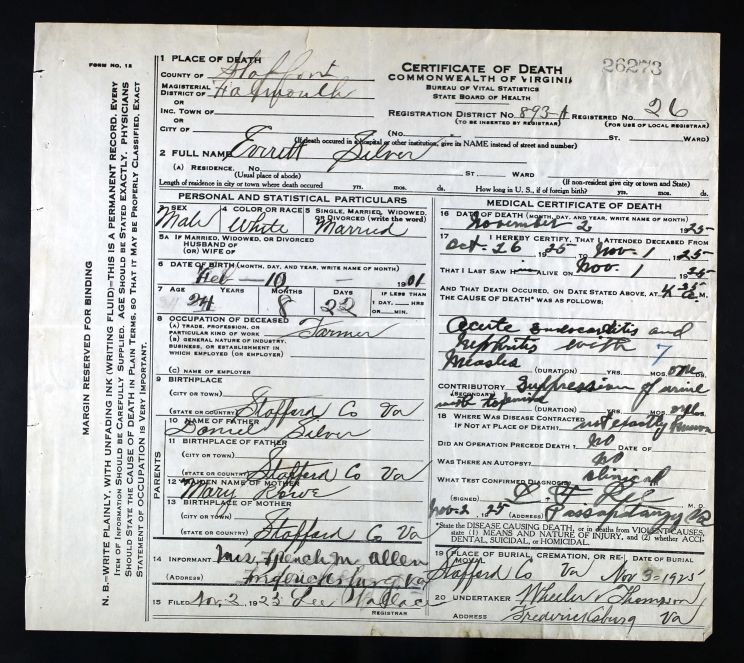 FORM NO. 12
MARGIN RESERVED FOR BINDING
N. B.—WRITE PLAINLY, WITH UNFADING INK (WRITING FLUID)—THIS IS A PERMANENT RECORD. EVERY
ITEM OF INFORMATION SHOULD BE CAREFULLY SUPPLIED. AGE SHOULD BE STATED EXACTLY. PHYSICIANS
SHOULD STATE THE CAUSE OF DEATH IN PLAIN TERMS, SO THAT IT MAY BE PROPERLY CLASSIFIED. EXACT
STATEMENT OF OCCUPATION IS VERY IMPORTANT.
1 PLACE OF DEATH
COUNTY OF Stafford
MAGISTERIAL DISTRICT OF Falmouth
OR
INC. TOWN OF
OR
CITY OF
CERTIFICATE OF DEATH
COMMONWEALTH OF VIRGINIA
BUREAU OF VITAL STATISTICS
STATE BOARD OF HEALTH
26273
REGISTRATION DISTRICT NO. 893-A REGISTERED NO. 26
(TO BE INSERTED BY REGISTRAR) (FOR USE OF LOCAL REGISTRAR)
(NO. ST. WARD)
(If death occurred in a hospital or other institution, give its NAME instead of street and number)
2 FULL NAME Everett Silver
(A) RESIDENCE. NO. ST. WARD
(Usual place of abode) (If non-resident give city or town and State)
Length of residence in city or town where death occurred yrs. mos. ds. How long in U. S., if of foreign birth? yrs. mos. ds.
PERSONAL AND STATISTICAL PARTICULARS
3 SEX Male
4 COLOR OR RACE White
5 SINGLE, MARRIED, WIDOWED, OR DIVORCED (write the word) Married
5A IF MARRIED, WIDOWED, OR DIVORCED
HUSBAND OF
(OR) WIFE OF
6 DATE OF BIRTH (MONTH, DAY, AND YEAR, WRITE NAME OF MONTH)
Feb—10— 1901
7 AGE 24 YEARS 8 MONTHS 22 DAYS
IF LESS THAN
1 DAY, HRS
OR MIN.
8 OCCUPATION OF DECEASED
(A) TRADE, PROFESSION, OR
PARTICULAR KIND OF WORK Farmer
(B) GENERAL NATURE OF INDUSTRY,
BUSINESS, OR ESTABLISHMENT IN
WHICH EMPLOYED (OR EMPLOYER)
(C) NAME OF EMPLOYER
9 BIRTHPLACE
(CITY OR TOWN)
(STATE OR COUNTRY) Stafford Co Va
PARENTS
10 NAME OF FATHER Daniel Silver
11 BIRTHPLACE OF FATHER
(CITY OR TOWN)
(STATE OR COUNTRY) Stafford Co Va
12 MAIDEN NAME OF MOTHER
Mary Lowe
13 BIRTHPLACE OF MOTHER
(CITY OR TOWN)
(STATE OR COUNTRY) Stafford Co Va
14 INFORMANT Mrs. French M. Allen
(ADDRESS) Fredericksburg Va
15 FILED Nov. 2 1925 Lee Wallace
REGISTRAR
MEDICAL CERTIFICATE OF DEATH
16 DATE OF DEATH (MONTH, DAY, AND YEAR, WRITE NAME OF MONTH)
November 2 1925
17 I HEREBY CERTIFY, THAT I ATTENDED DECEASED FROM
Oct. 26 1925 TO Nov. 1 1925
THAT I LAST SAW him ALIVE ON Nov. 1 1925
AND THAT DEATH OCCURRED, ON DATE STATED ABOVE, AT M.
THE CAUSE OF DEATH* WAS AS FOLLOWS:
Acute endocarditis and
Nephritis with 7
Measles
(DURATION) YRS. MOS. one DS.
CONTRIBUTORY Suppression of urine
(SECONDARY) with
(DURATION) YRS. MOS. DS.
18 WHERE WAS DISEASE CONTRACTED
IF NOT AT PLACE OF DEATH? not exactly known
DID AN OPERATION PRECEDE DEATH? No DATE OF
WAS THERE AN AUTOPSY? No
WHAT TEST CONFIRMED DIAGNOSIS? clinical
(SIGNED) M. D.
Nov-2 1925 (ADDRESS) Passapatanzy Va
*State the DISEASE CAUSING DEATH, or in deaths from VIOLENT CAUSES,
state (1) MEANS AND NATURE OF INJURY, and (2) whether ACCI-
DENTAL, SUICIDAL, or HOMICIDAL.
19 PLACE OF BURIAL, CREMATION, OR REMOVAL DATE OF BURIAL
Stafford Co Va Nov 3—1925
20 UNDERTAKER Wheeler & Thompson
ADDRESS Fredericksburg Va